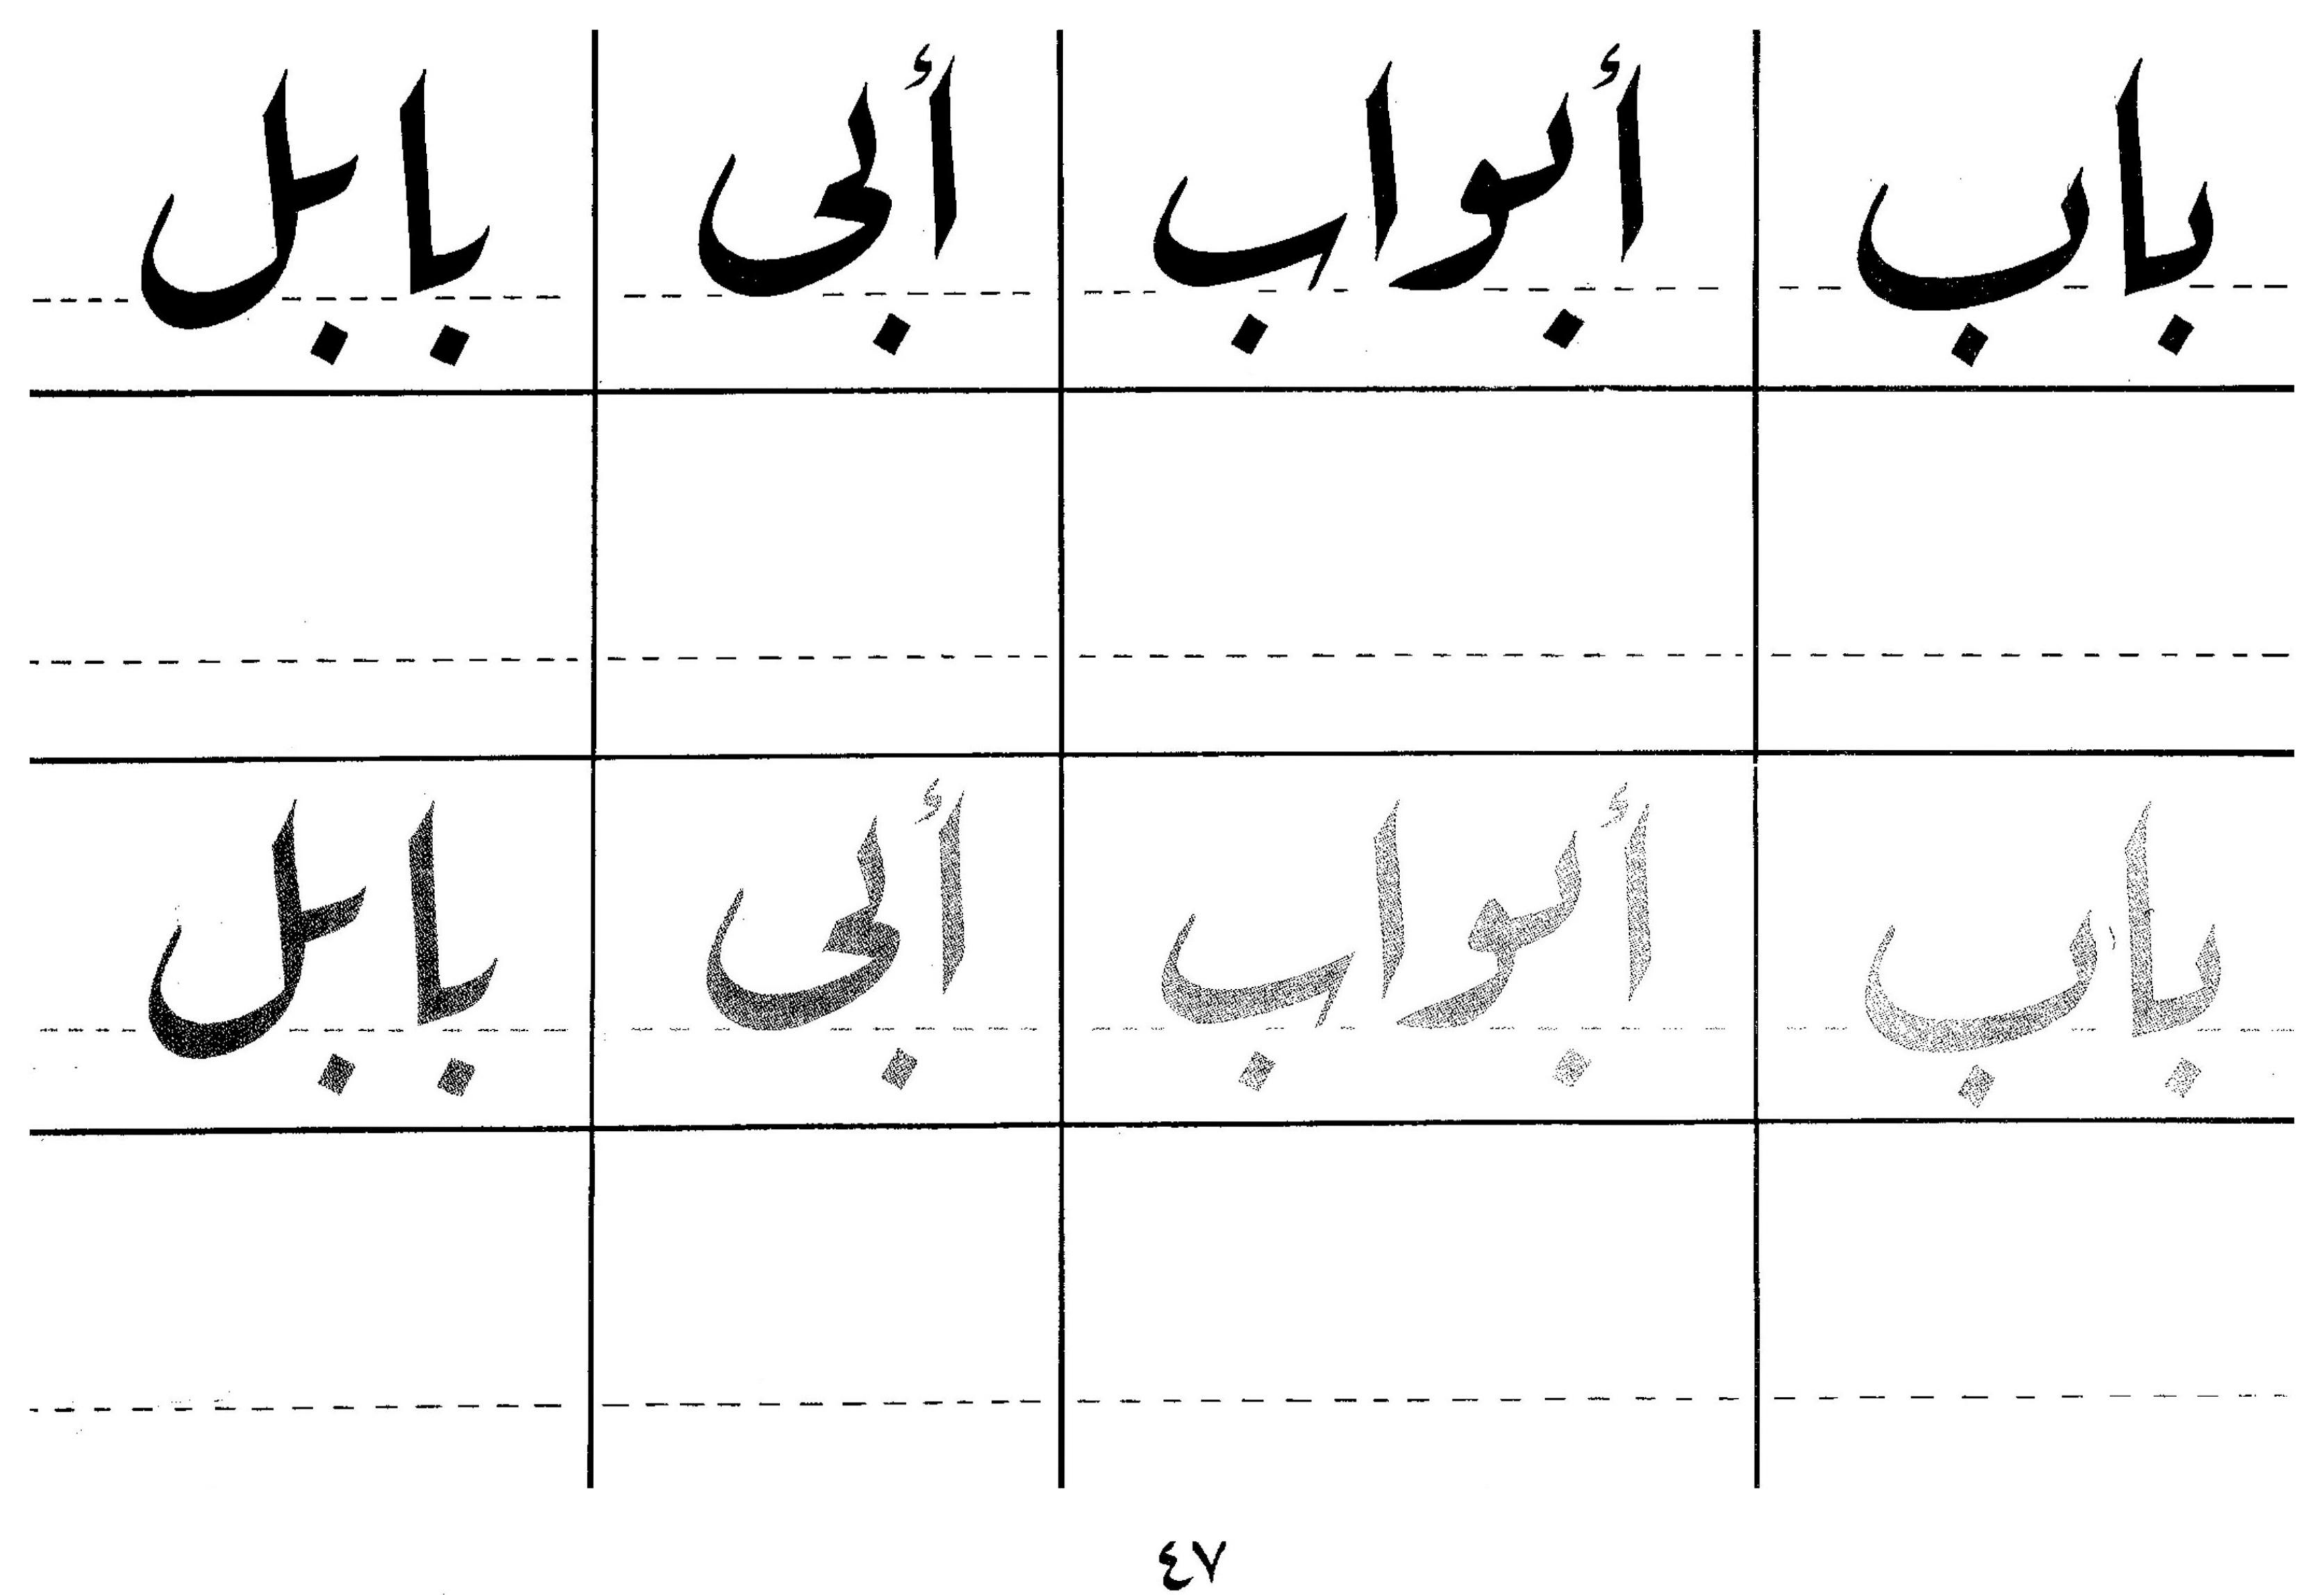 باب أبواب أبى بابل
باب أبواب أبى بابل
٤٧